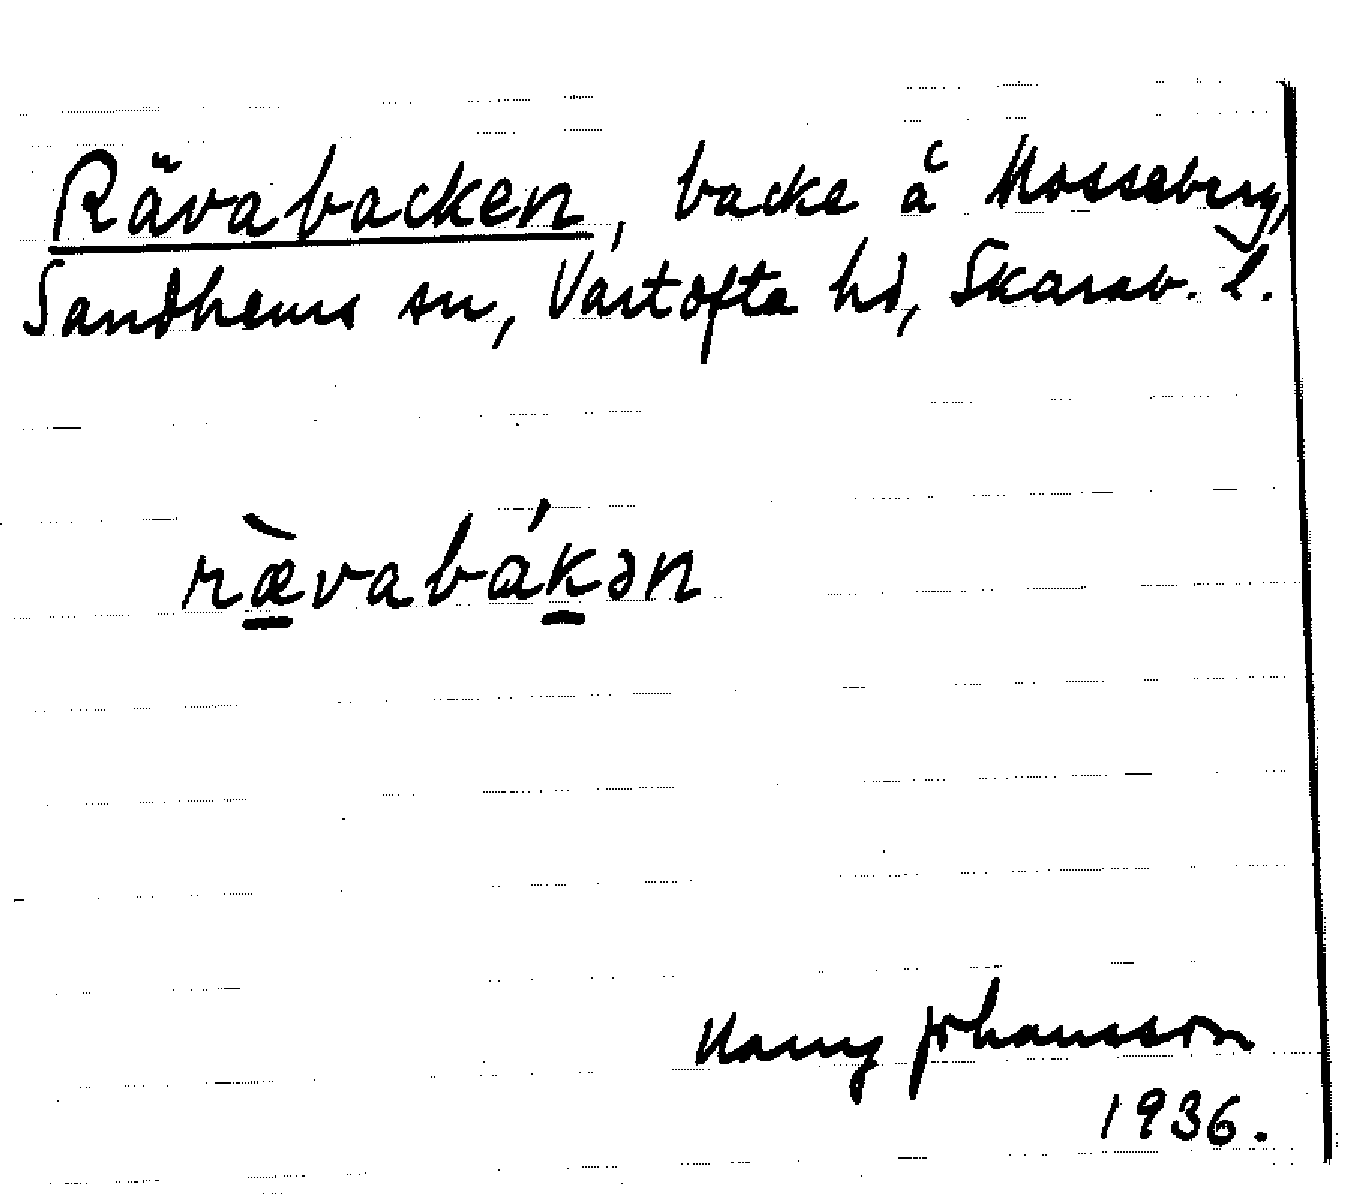 Rävabacken, backe å Mosseberg,
Sandhems sn, Vartofta hd, Skarab. l.
ræ̠̀vabák̠ən
Harry Johansson
1936.